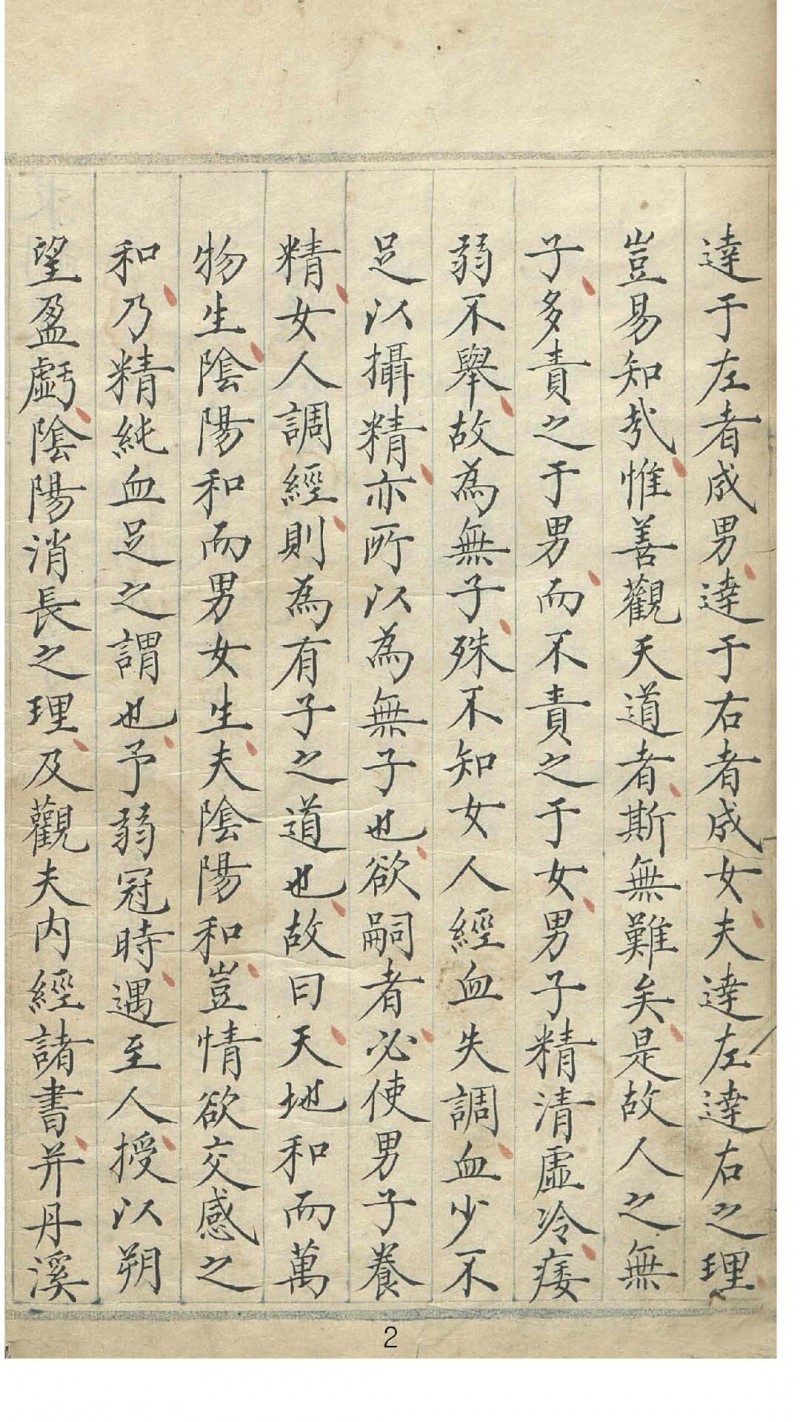 達于左者成男達于右者成女夫達左達右之理
豈易知㢤惟善觀天道者斯無難矣是故人之無
子多責之于男而不責之于女男子精清虛冷痿
弱不舉故為無子殊不知女人經血失調血少不
足以攝精亦所以為無子也欲嗣者必使男子養
精女人調經則為有子之道也故曰天地和而萬
物生陰陽和而男女生夫陰陽和豈情欲交感之
和乃精純血足之謂也予弱冠時遇至人授以朔
望盈虧陰陽消長之理及觀夫内經諸書并丹溪
2